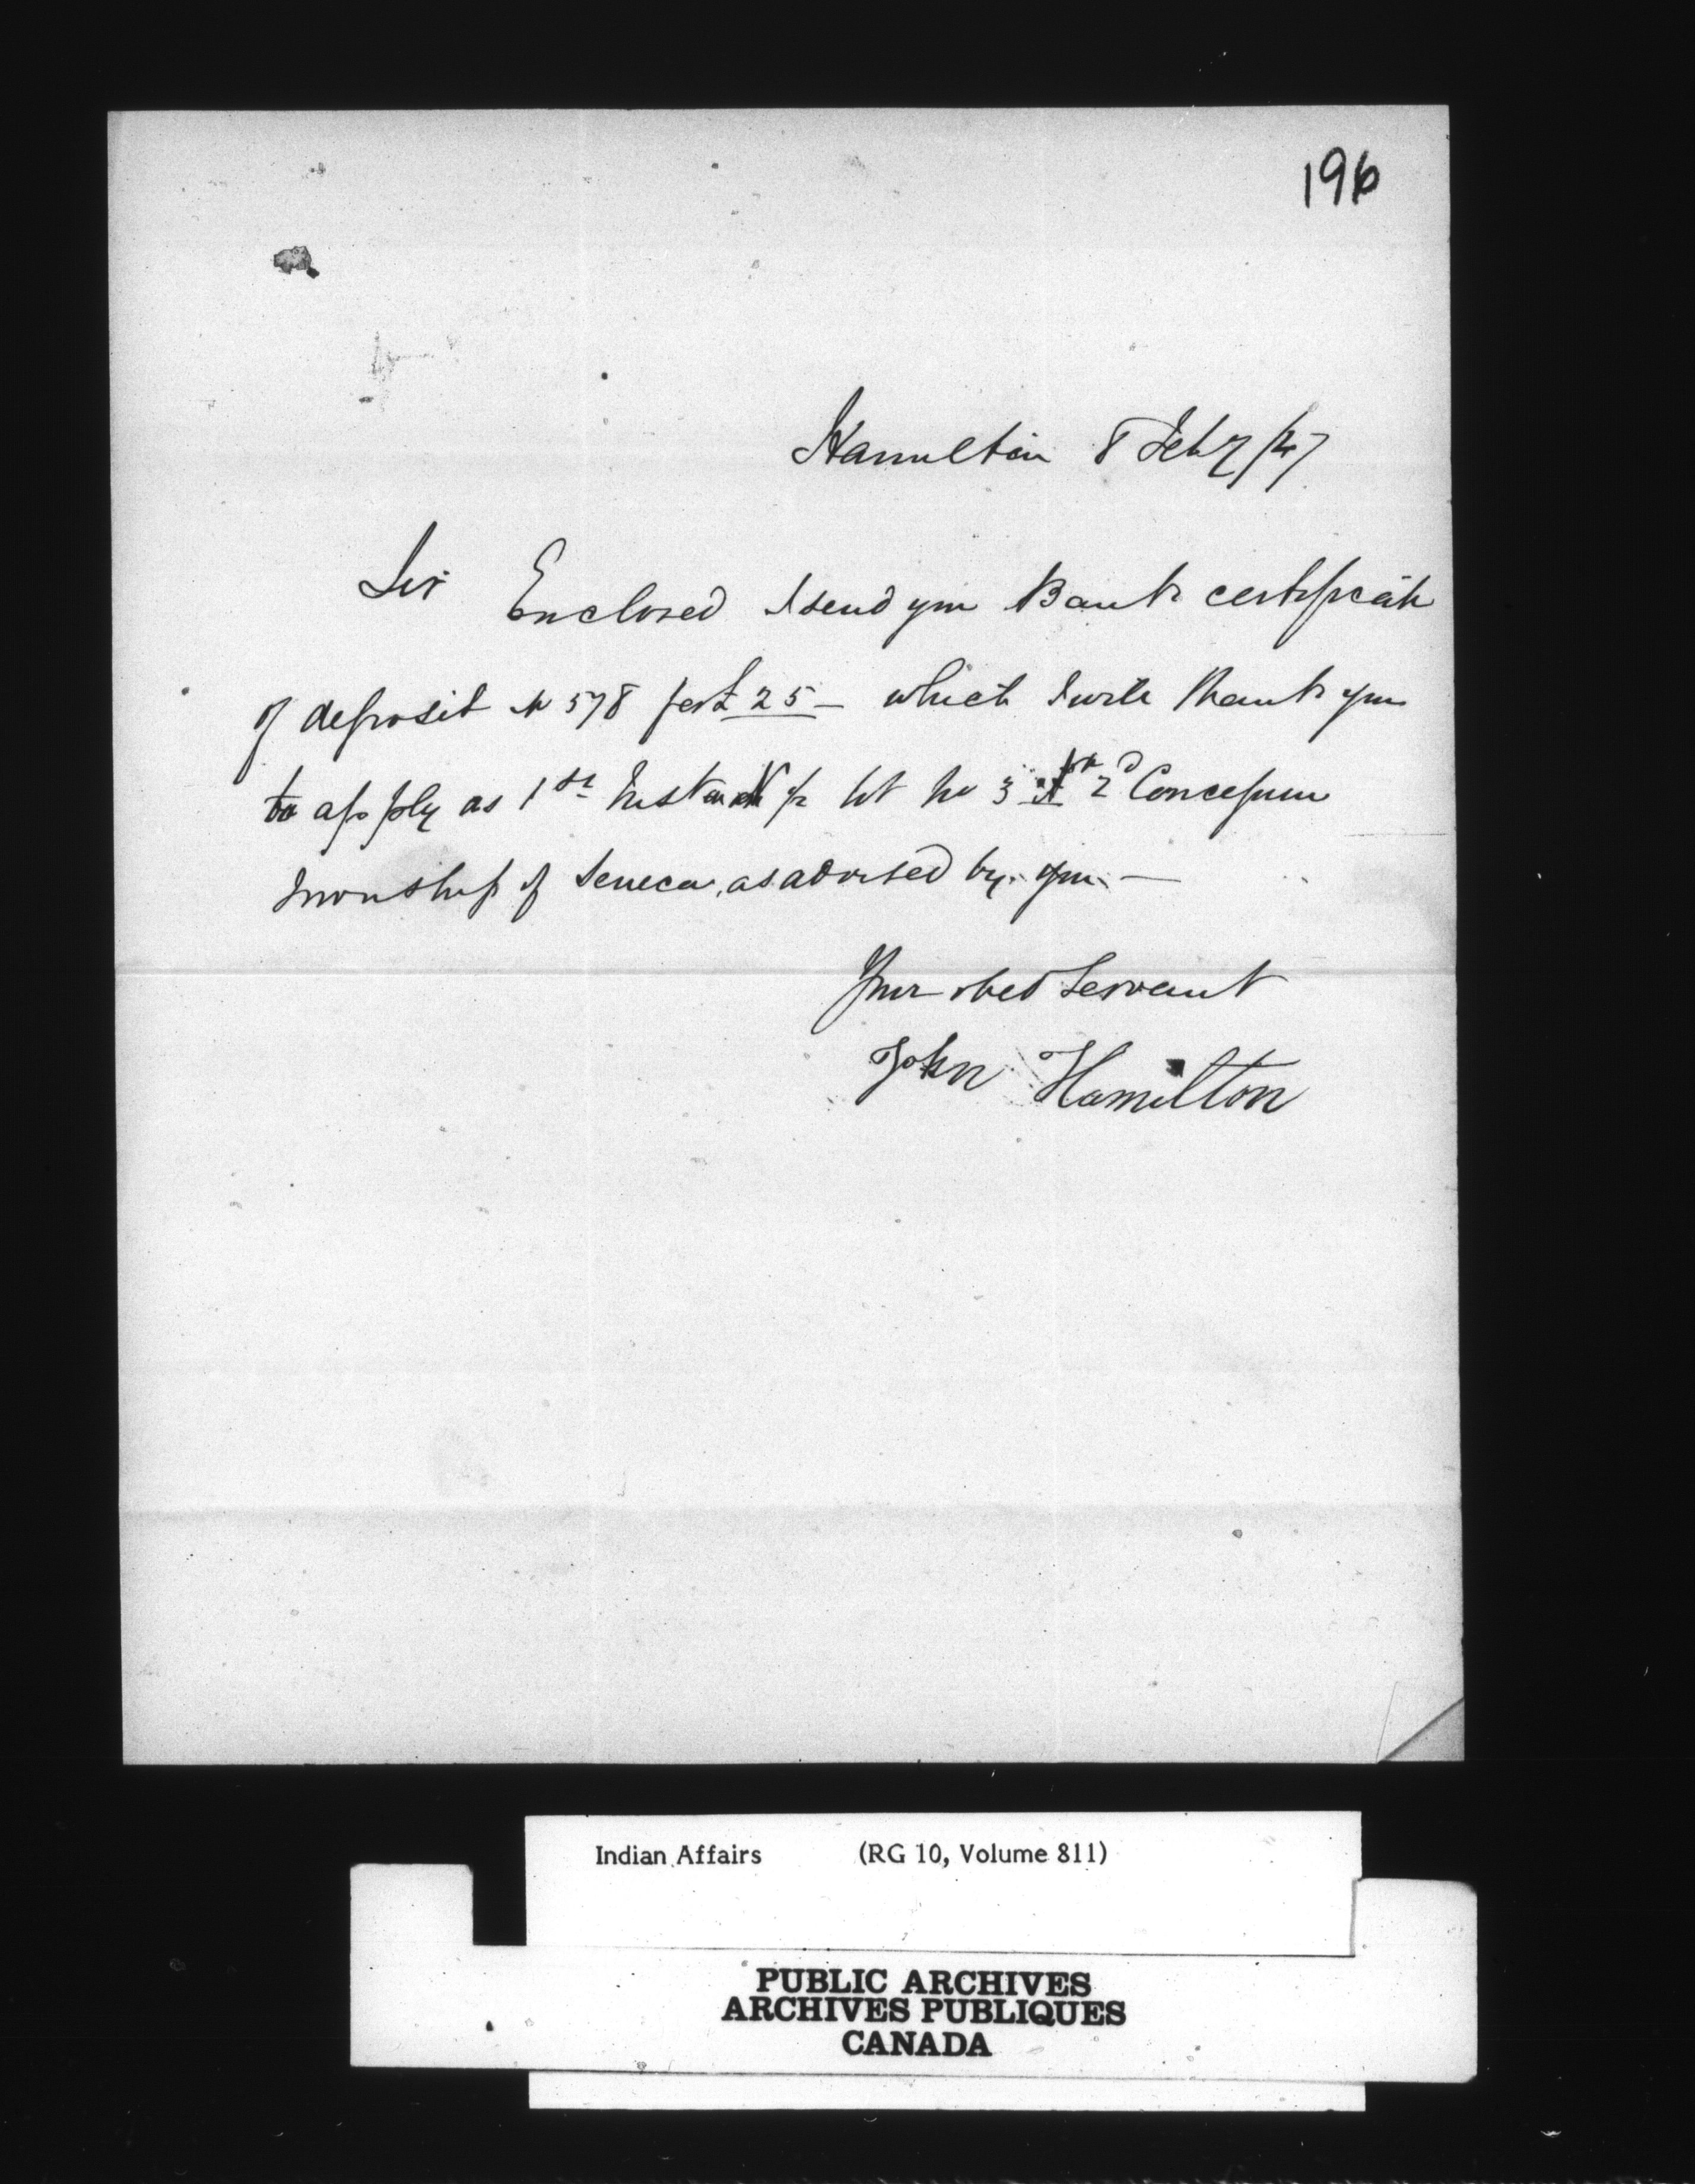 196
Hamilton 8 Feby /47
Sir Enclosed I send you Bank certificate
of deposit No 578 for £25 — which I will thank you
to apply as 1st Instal lot No 3 2d Concession
Township of Seneca, as advised by you —
Your obed Servant
John Hamilton
Indian Affairs (RG 10, Volume 811)
PUBLIC ARCHIVES
ARCHIVES PUBLIQUES
CANADA